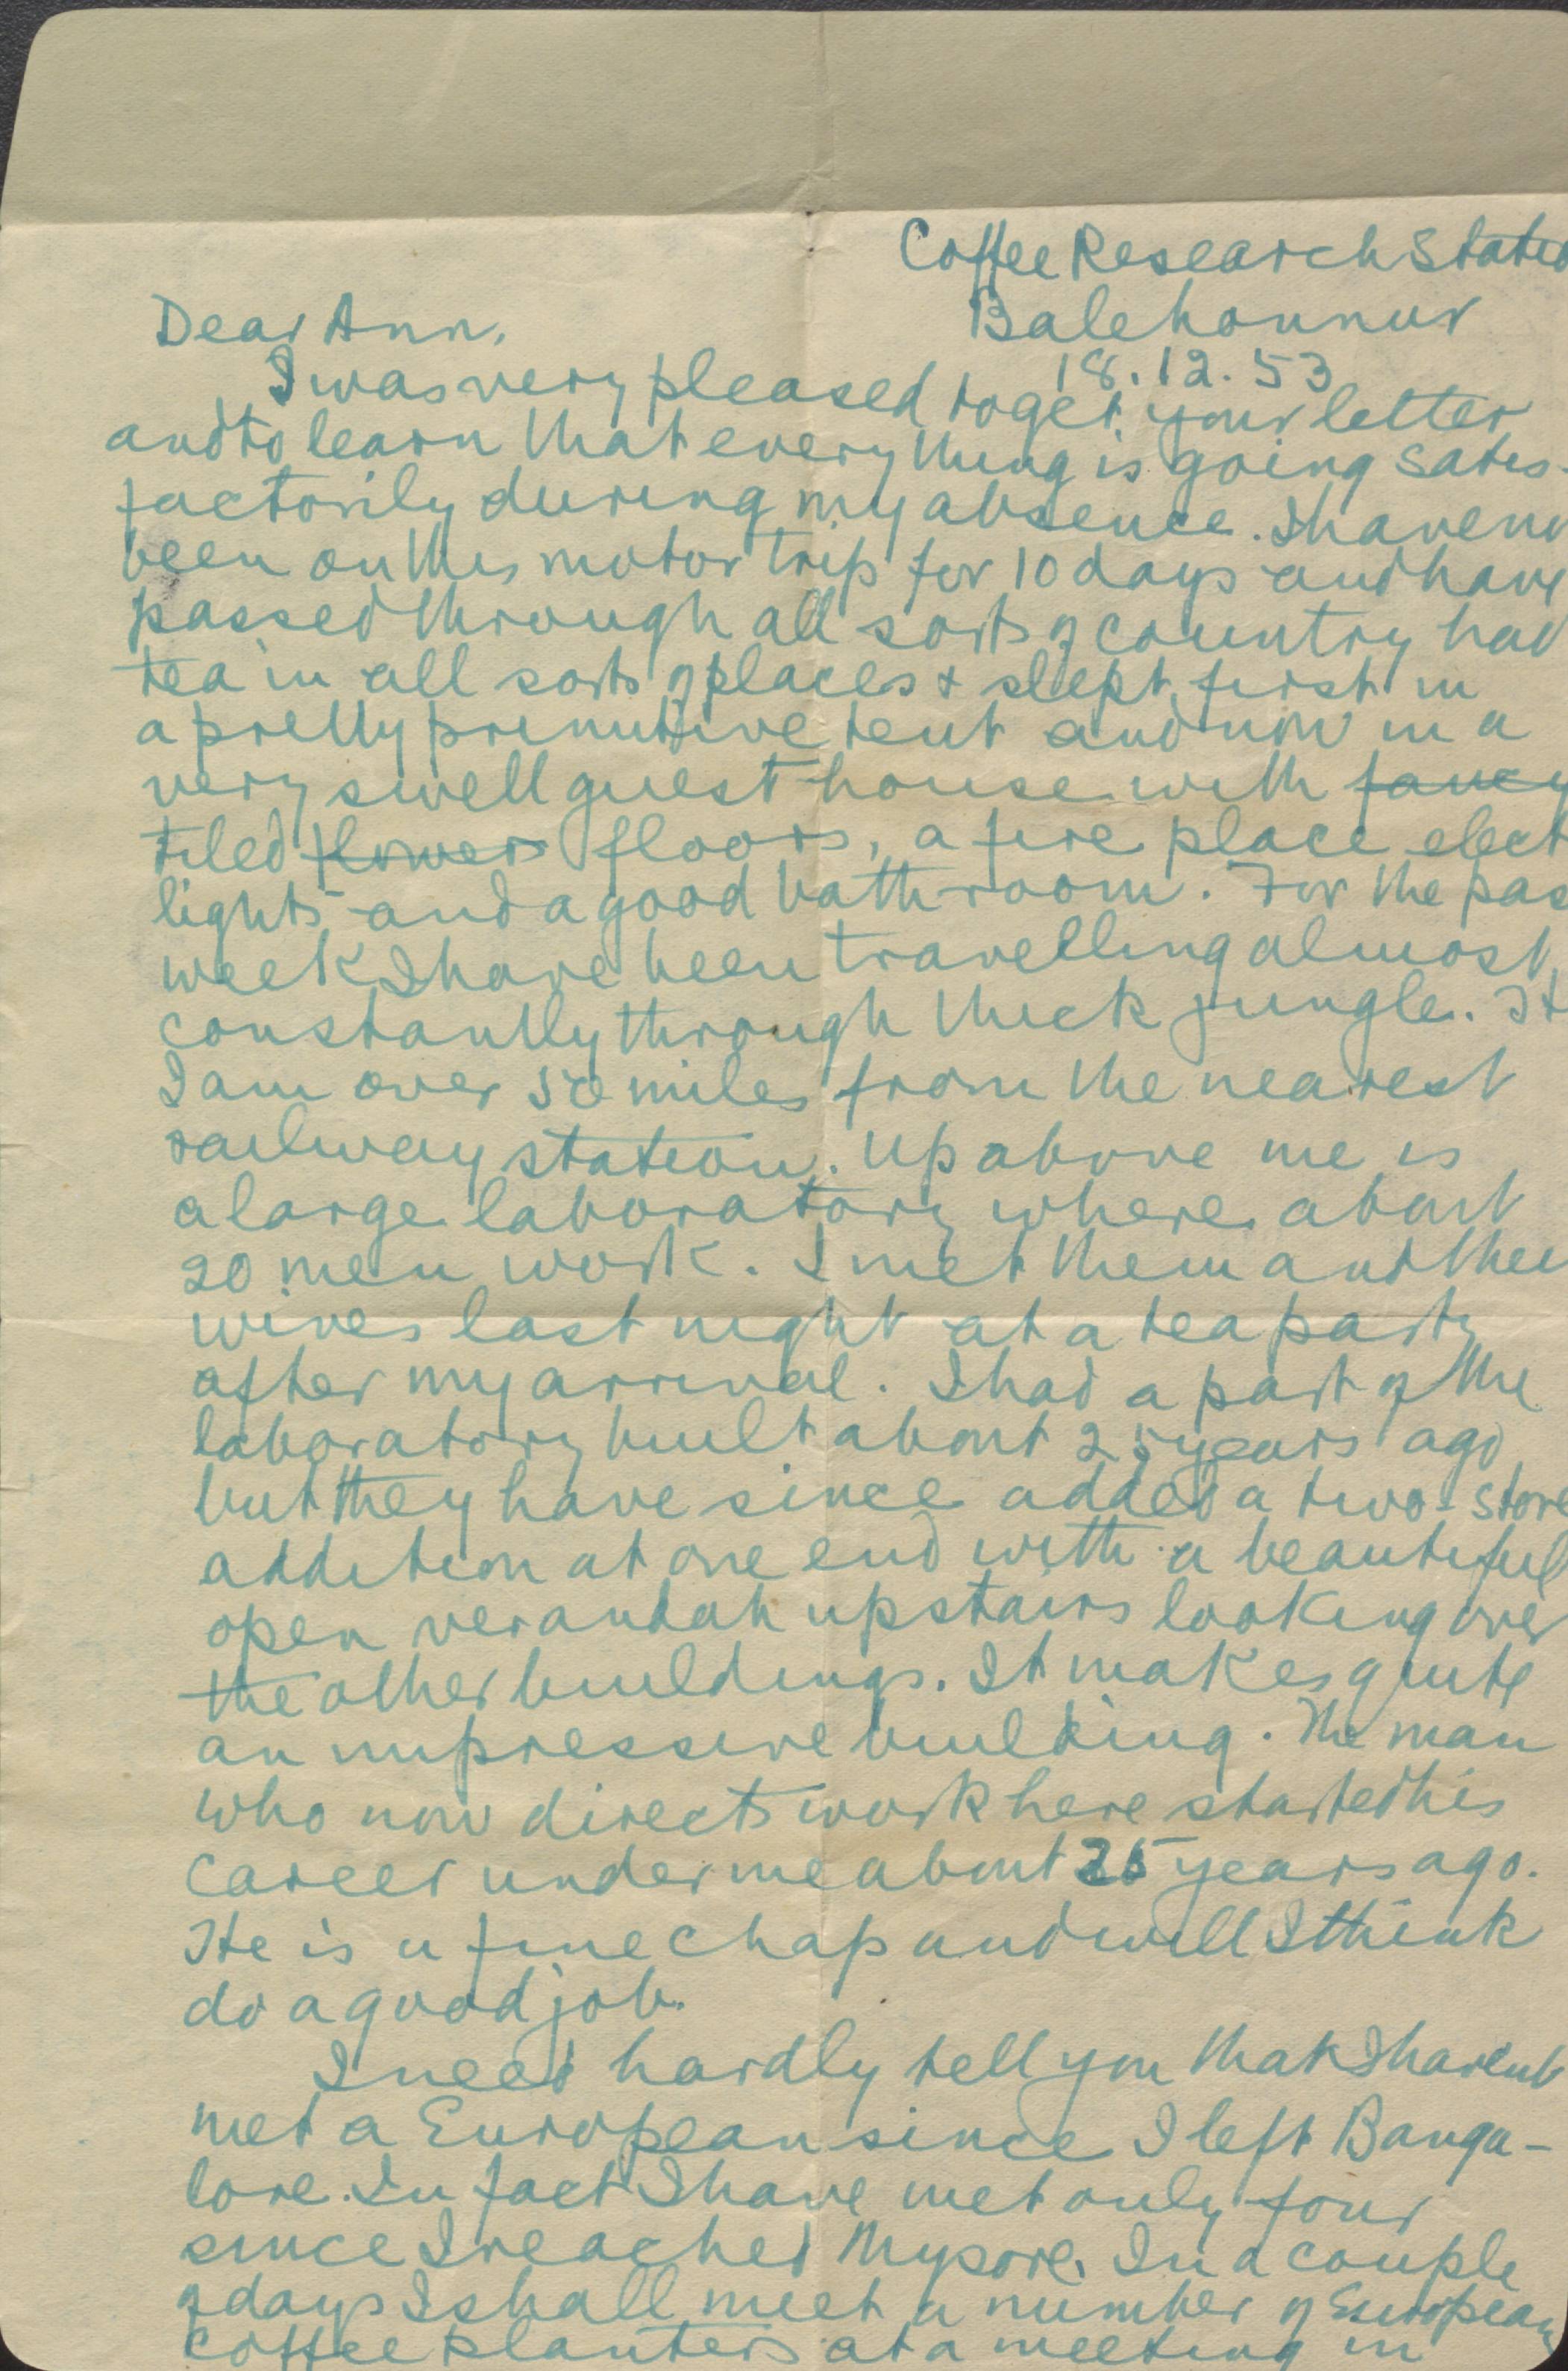 Coffee Research Statio
Balehonnur
18.12.53
Dear Ann,
I was very pleased to get your letter
and to learn that everything is going satis-
factorily during my absence. I have no
been on this motor trip for 10 days and have
passed through all sorts of country had
tea in all sorts of places & slept first in
a pretty primitive tent and now in a
very swell guest house with fancy
tiled flowers floors, a fire place elect
lights and a good bathroom. For the pas
week I have been travelling almost
constantly through thick jungle. It
I am over 50 miles from the nearest
railway station. Up above me is
a large laboratory where about
20 men work. I met them and thei
wives last night at a tea party
after my arrival. I had a part of the
laboratory built about 25 years ago
but they have since added a two-store
addition at one end with a beautiful
open verandah upstairs looking over
the other buildings. It makes quite
an impressive building. The man
who now directs work here started his
career under me about 25 years ago.
He is a fine chap and will I think
do a good job.
I need hardly tell you that I havent
met a European since I left Banga-
lore. In fact I have met only four
since I reached Mysore. In a couple
of days I shall meet a number of European
coffee planters at a meeting in